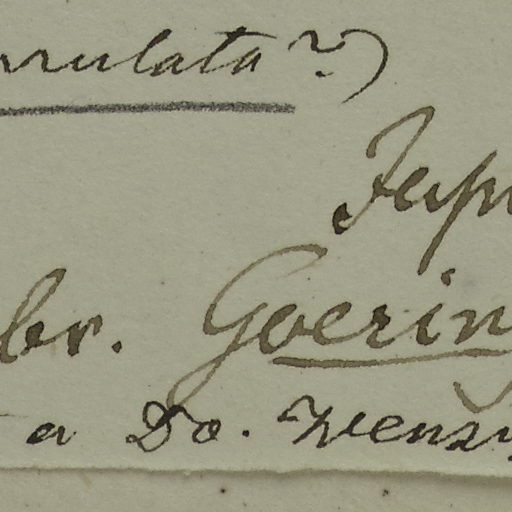 rrulata?)
Jap
br. Goerin
a Do. Wenz